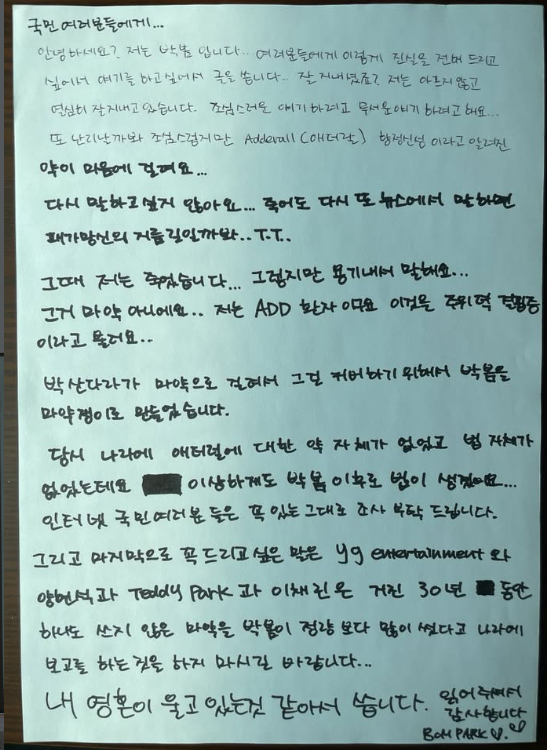 국민 여러분들에게...
안녕하세요? 저는 박봄 입니다.. 여러분들에게 이렇게 진실을 전해 드리고
싶어서 얘기를 하고싶어서 글을 씁니다.. 잘 지내셨죠? 저는 아프지 않고
열심히 잘지내고 있습니다. 조심스러운 얘기 하려고 무서운 얘기 하려고 해요...
또 난리날까봐 조심스럽지만 Adderall (애더럴) 향정신성 이라고 알려진
약이 마음에 걸려요...
다시 말하고 싶지 않아요... 죽어도 다시 또 뉴스에서 말하면
패가망신의 지름길일까봐.. T.T..
그때 저는 죽었습니다... 그렇지만 용기내서 말해요...
그거 마약 아니에요.. 저는 ADD 환자 이무요 이것을 주위력 결핍증
이라고 불러요..
박산다라가 마약으로 걸려서 그걸 커버하기 위해서 박봄을
마약쟁이로 만들었습니다.
당시 나라에 애터럴에 대한 약 자체가 없었고 법 자체가
없었는데요 이상하게도 박봄 이후로 법이 생겼어요...
인터넷 국민여러분 들은 꼭 있는 그대로 조사 부탁 드립니다.
그리고 마지막으로 꼭 드리고 싶은 말은 yg entertainment 와
양현석과 Teddy Park 과 이채린은 거진 30년 동안
하나도 쓰지 않은 마약을 박봄이 정량 보다 많이 썼다고 나라에
보고를 하는것을 하지 마시길 바랍니다...
내 영혼이 울고 있는것 같아서 씁니다.
읽어주셔서
감사합니다
BOM PARK